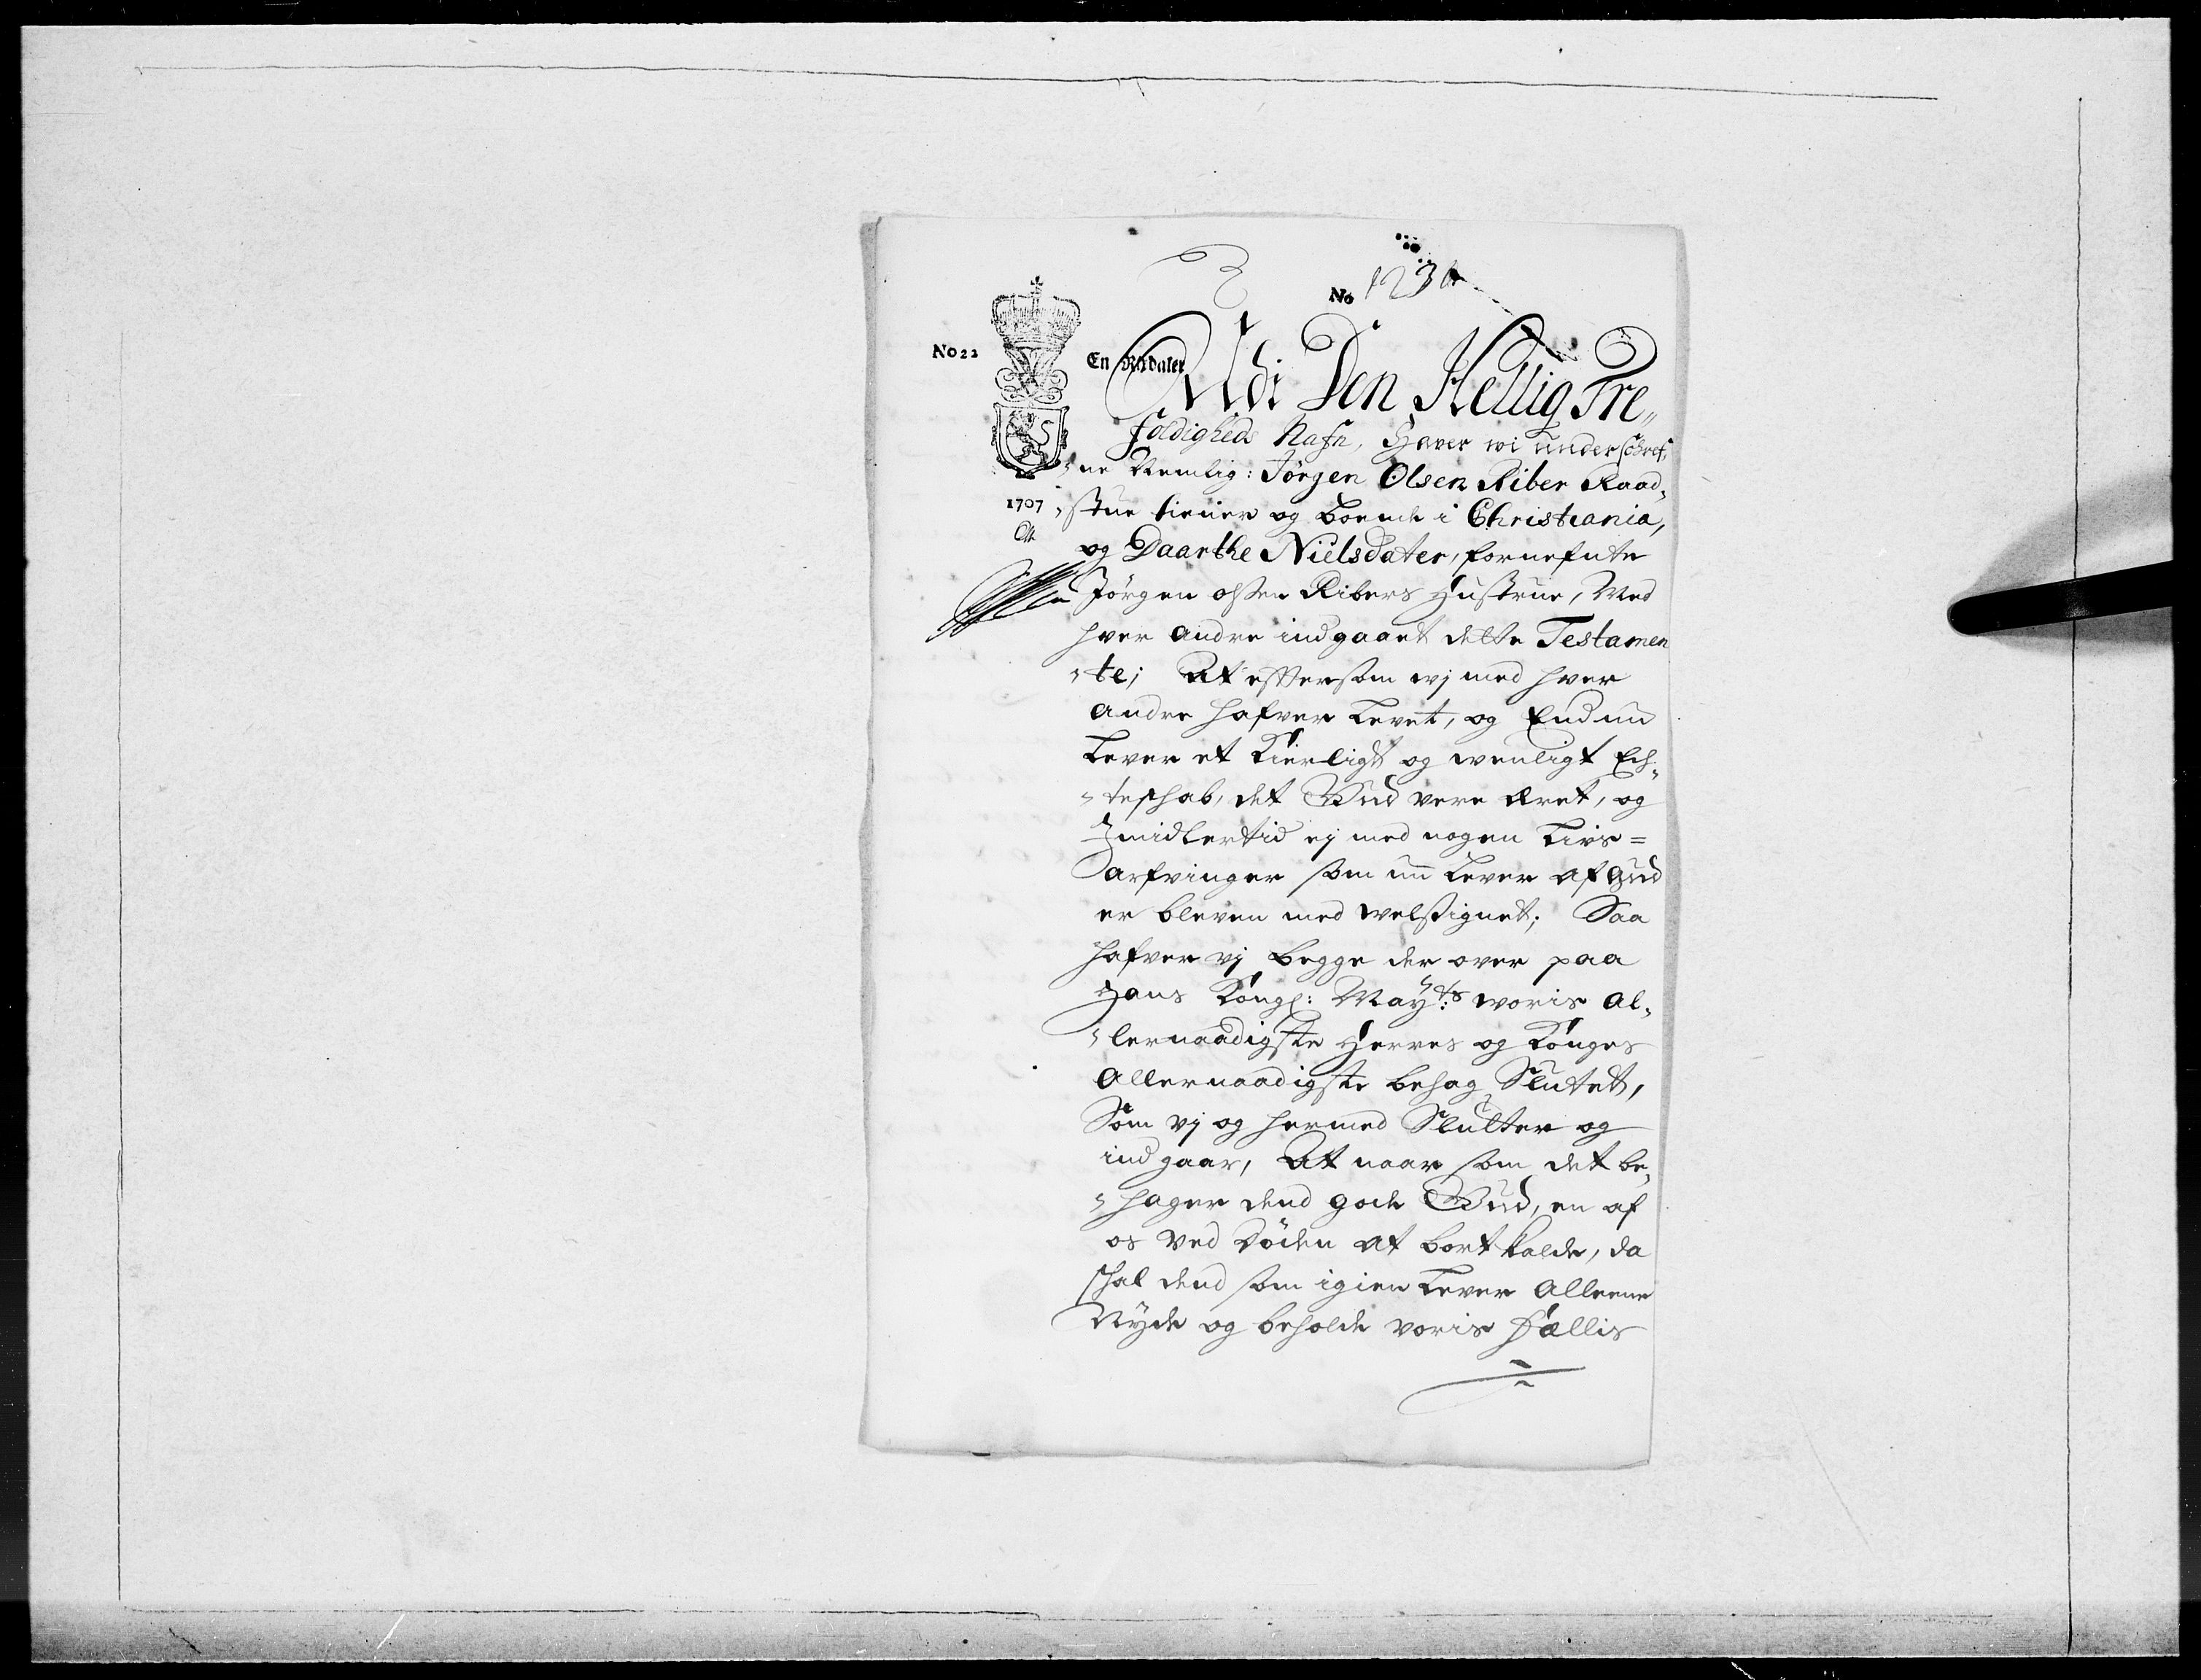 No 123
No 22
En Rixdaler
Udi Den Hellig Tre„
foldigheds Nafn, Haver wi underschref„
„ne Nemlig: Jörgen Olsen Riber Raad„
1707
„stue tiener og boende i Christiania,
og Daarthe Nielsdater, fornefnte
Jörgen olsen Ribers Hustrue, Med
hver andre indgaaet dette Testamen
„te; At efftersom wj med hver
andre hafver Levet, og End nu
Lever et Kierligt og wenligt Ech„
„teschab, det Gud vere æret, og
Imidlertid ej med nogen Livs=
arfvinger som nu Lever af Gud
er bleven med welsignet; Saa
hafver vj begge der over paa
Hans Kongl: Mayts: woris al„
„lernaadigste Herres og Konges
Allernaadigste behag Slutet,
Som vj og hermed Slutter og
ind gaar, At naar som det be„
„hager dend gode Gud, en af
os ved Döden at bortkalde, da
schal dend som igien Lever Alleene
Nyde og beholde voris Fællis